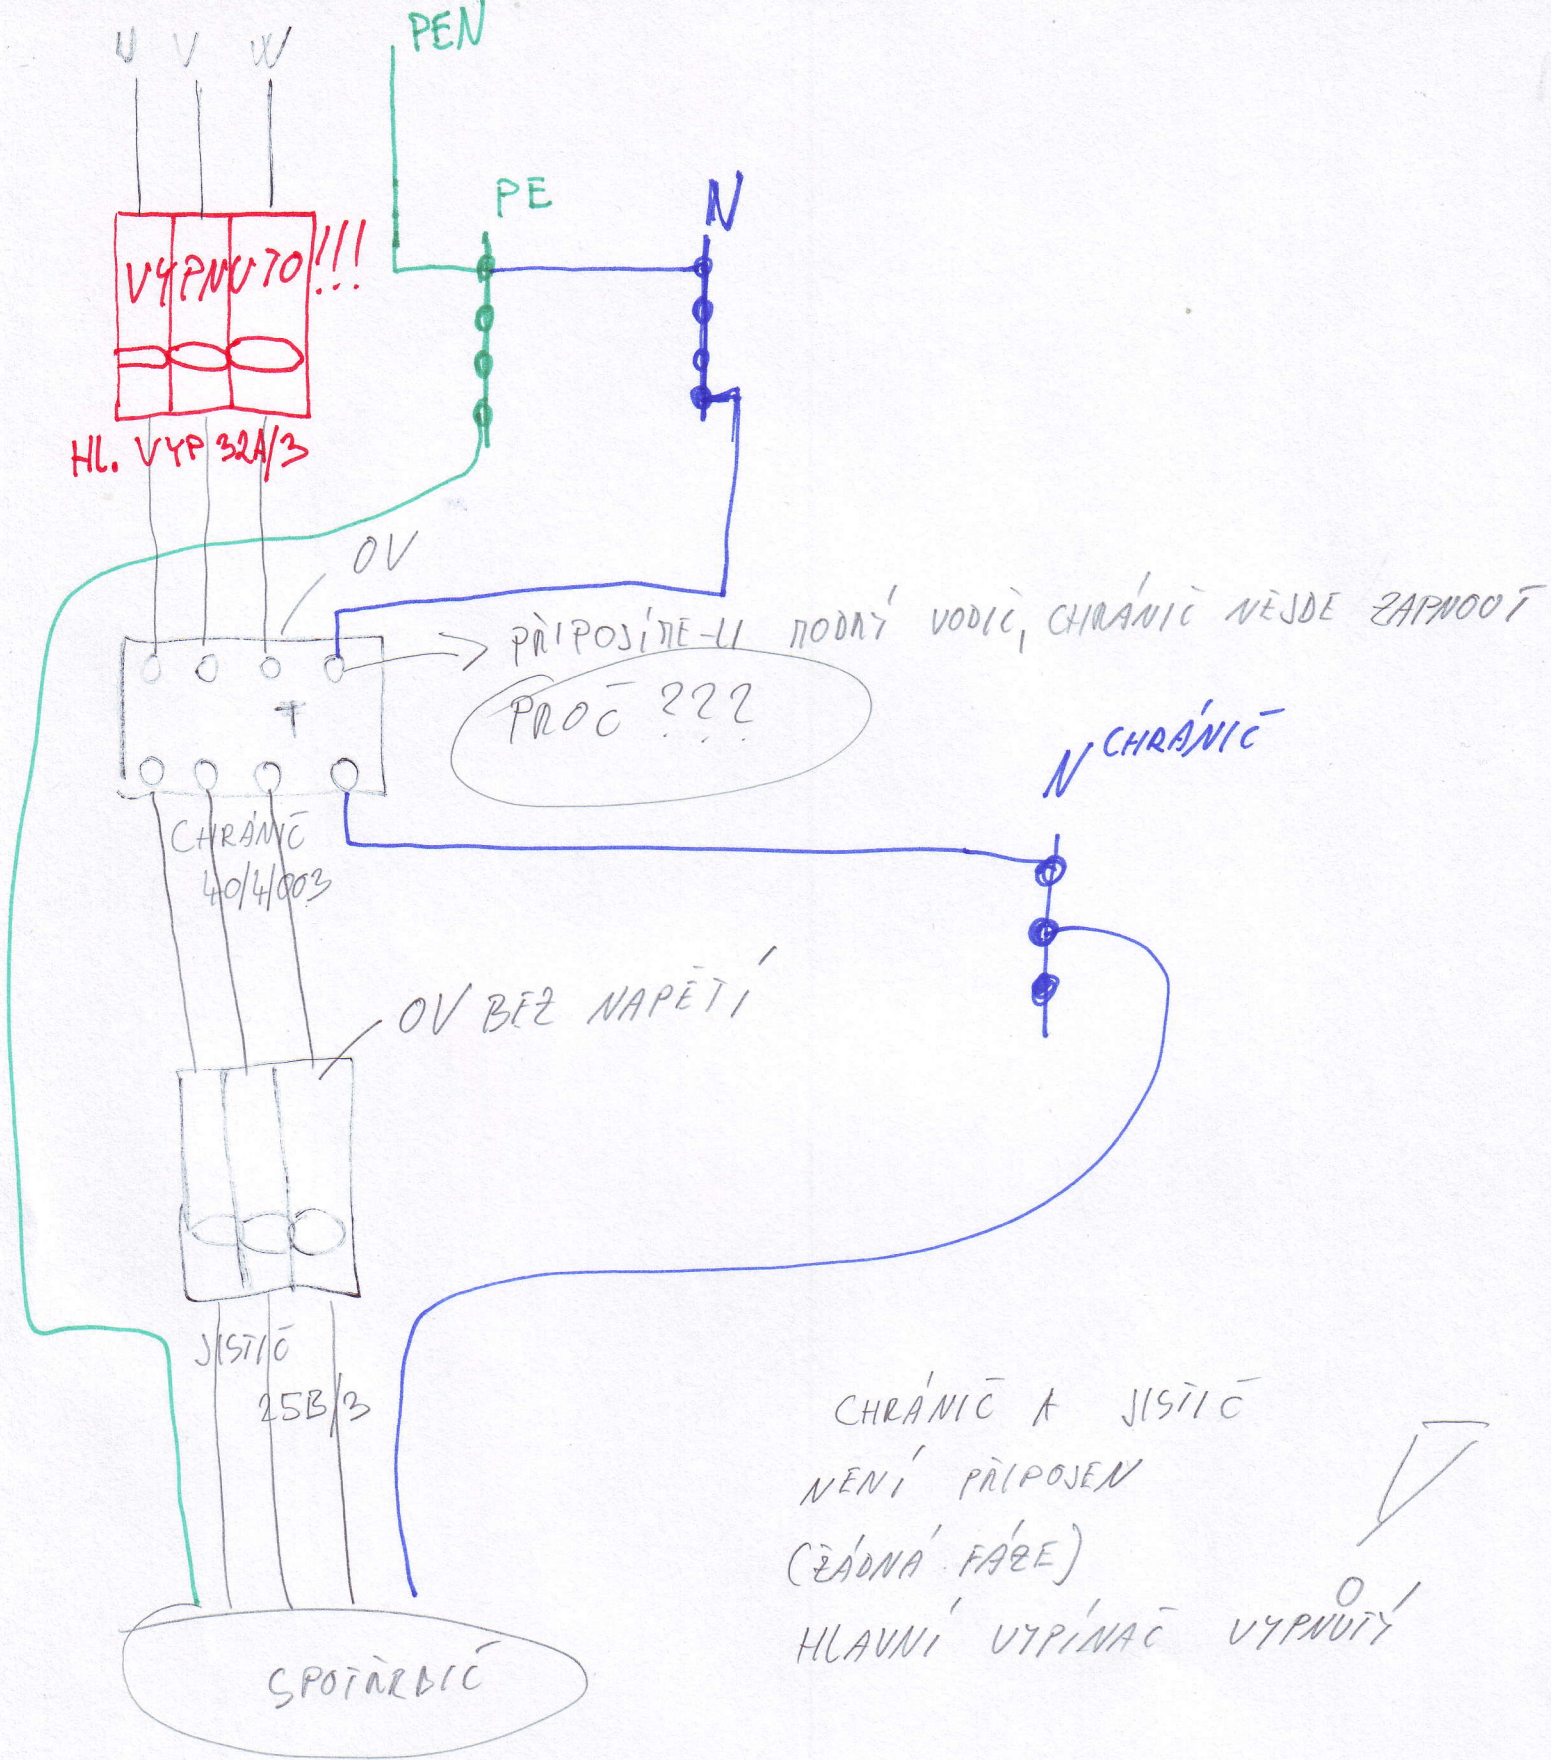 U V W
PEN
PE
N
VYPNUTO!!!
HL. VYP 32A/3
0V
PŘIPOJÍME-LI MODRÝ VODIČ, CHRÁNIČ NEJDE ZAPNOUT
PROČ ???
T
N CHRÁNIČ
CHRÁNIČ
40/4/003
0V BEZ NAPĚTÍ
JISTIČ
25B/3
CHRÁNIČ A JISTIČ
NENÍ PŘIPOJEN
(ŽÁDNÁ FÁZE)
HLAVNÍ VYPÍNAČ VYPNUTÝ
SPOTŘEBIČ